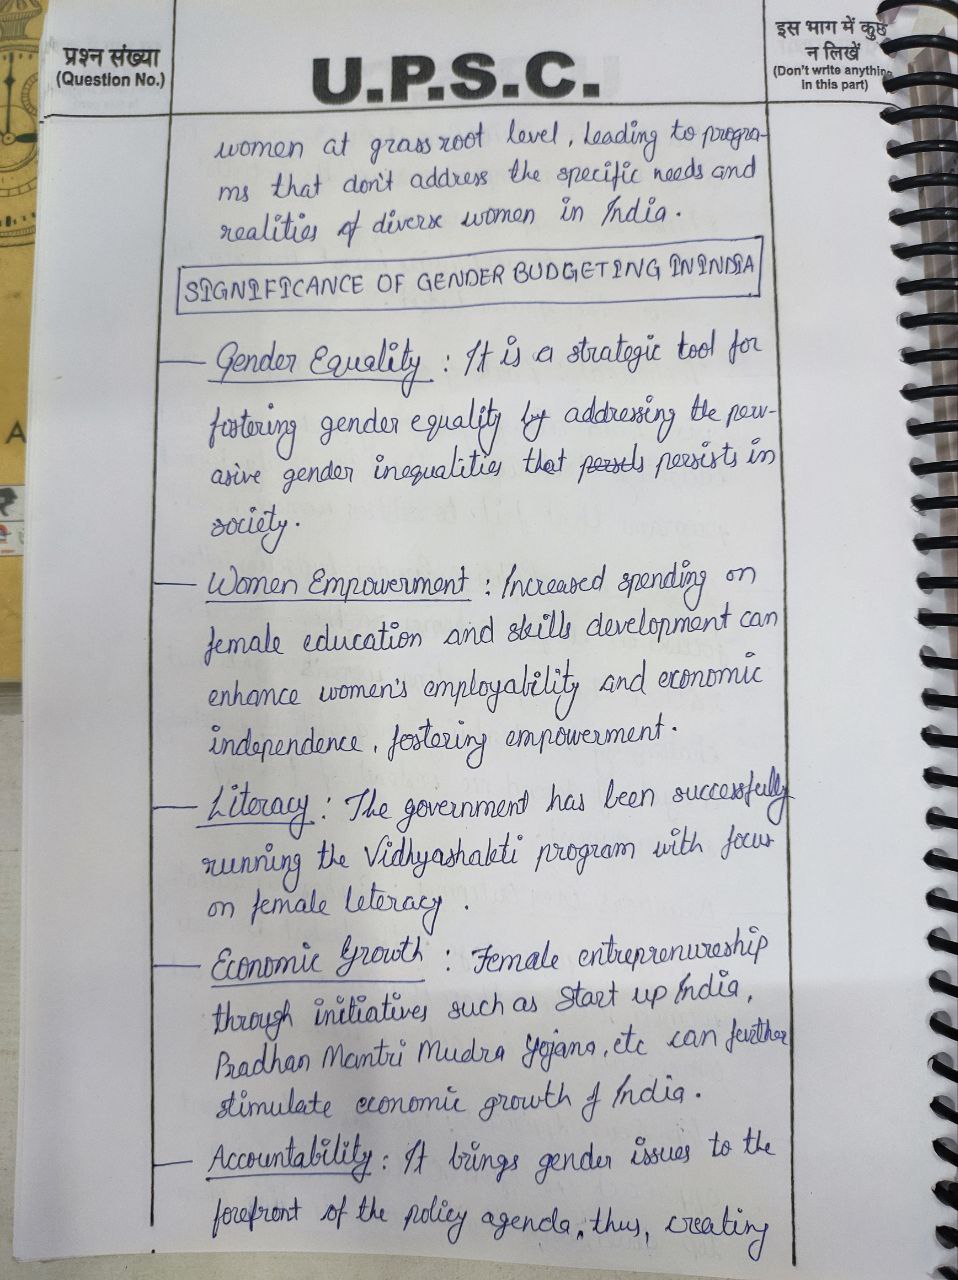 प्रश्न संख्या
(Question No.)
U.P.S.C.
इस भाग में कुछ
न लिखें
(Don't write anything
in this part)
women at grass root level, leading to progra-
ms that don't address the specific needs and
realities of diverse women in India.
SIGNIFICANCE OF GENDER BUDGETING IN INDIA
Gender Equality : It is a strategic tool for
fostering gender equality by addressing the perv-
asive gender inequalities that persists in
society.
Women Empowerment : Increased spending on
female education and skills development can
enhance women's employability and economic
independence, fostering empowerment.
Literacy : The government has been successfully
running the Vidhyashakti program with focus
on female leteracy.
Economic Growth : Female entreprenureship
through initiatives such as Start up India,
Pradhan Mantri Mudra Yojana, etc can further
stimulate economic growth of India.
Accountability : It brings gender issues to the
forefront of the policy agenda, thus, creating
A